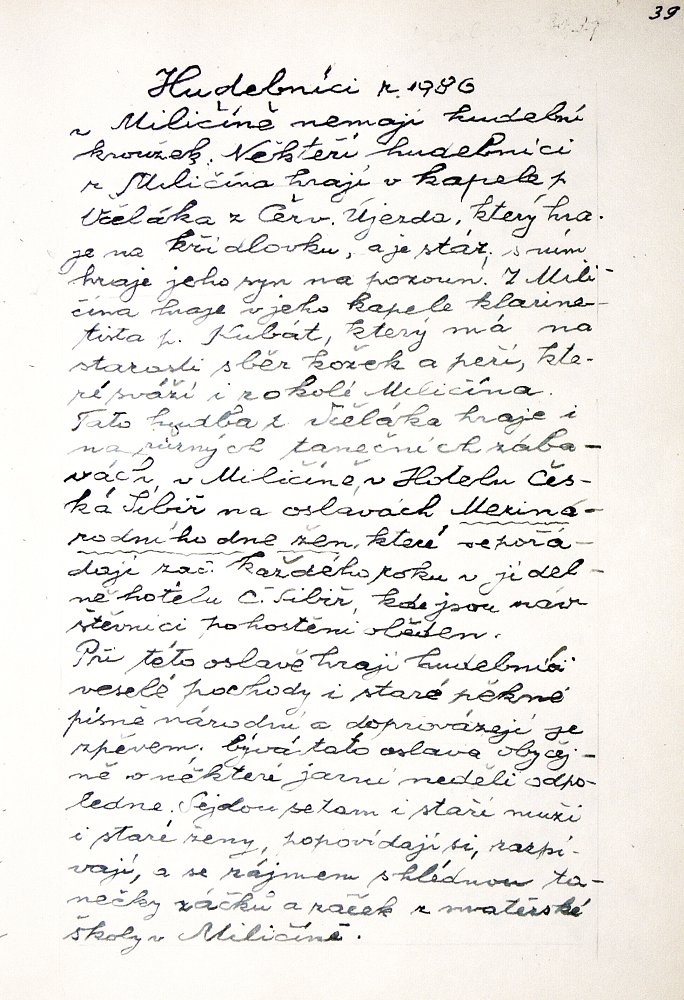 39
Hudebníci r. 1986
v Miličíně nemají hudební
kroužek. Někteří hudebníci
z Miličína hrají v kapele p
Včeláka z Červ. Újezda, který hra-
je na křídlovku, a je stář. s ním
hraje jeho syn na pozoun. Z Mili-
čína hraje v jeho kapele klarine-
tista p. Kubát, který má na
starosti sběr kožek a peří, kte-
ré sváží i z okolí Miličína.
Tato hudba z Včeláka hraje i
na různých tanečních zába-
vách, v Miličíně, v Hotelu Čes-
ká Sibiř na oslavách Meziná-
rodního dne žen, které se pořá-
dají zač. každého roku v jídel-
ně hotelu Č. Sibiř, kde jsou náv
štěvníci pohoštěni obědem.
Při této oslavě hrají hudebníci
veselé pochody i staré pěkné
písně národní a doprovázejí je
zpěvem. bývá tato oslava obyčej-
ně v některé jarní neděli odpo-
ledne. Sejdou se tam i staří muži
i staré ženy, popovídají si, zazpí-
vají, a se zájmem shlédnou ta-
nečky žáčků a žáček z mateřské
školy v Miličíně.